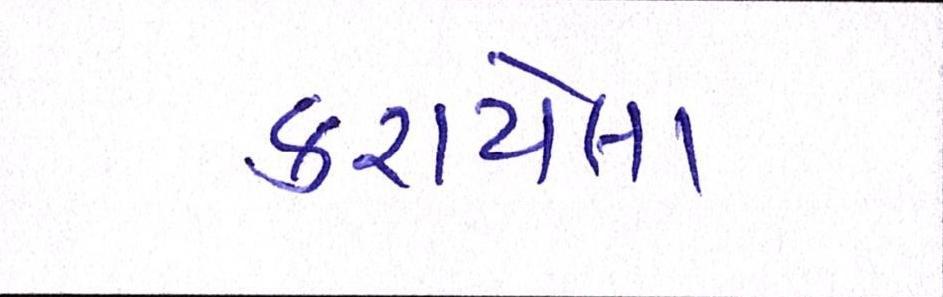 કરાયેલા